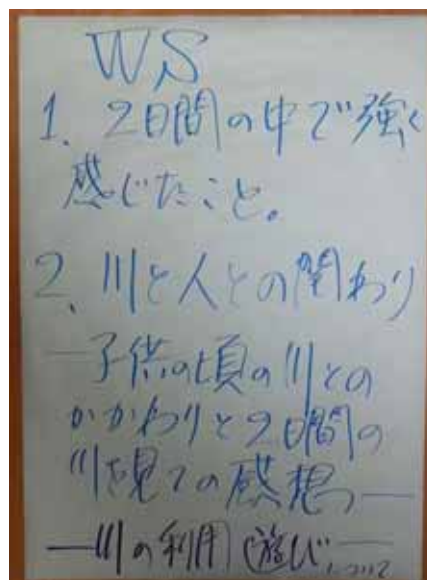 WS
1、2日間の中で強く
感じたこと。
2、川と人との関わり
―子供の頃の川との
かかわりと2日間の
川を見ての感想
―川の利用(遊び)―
について